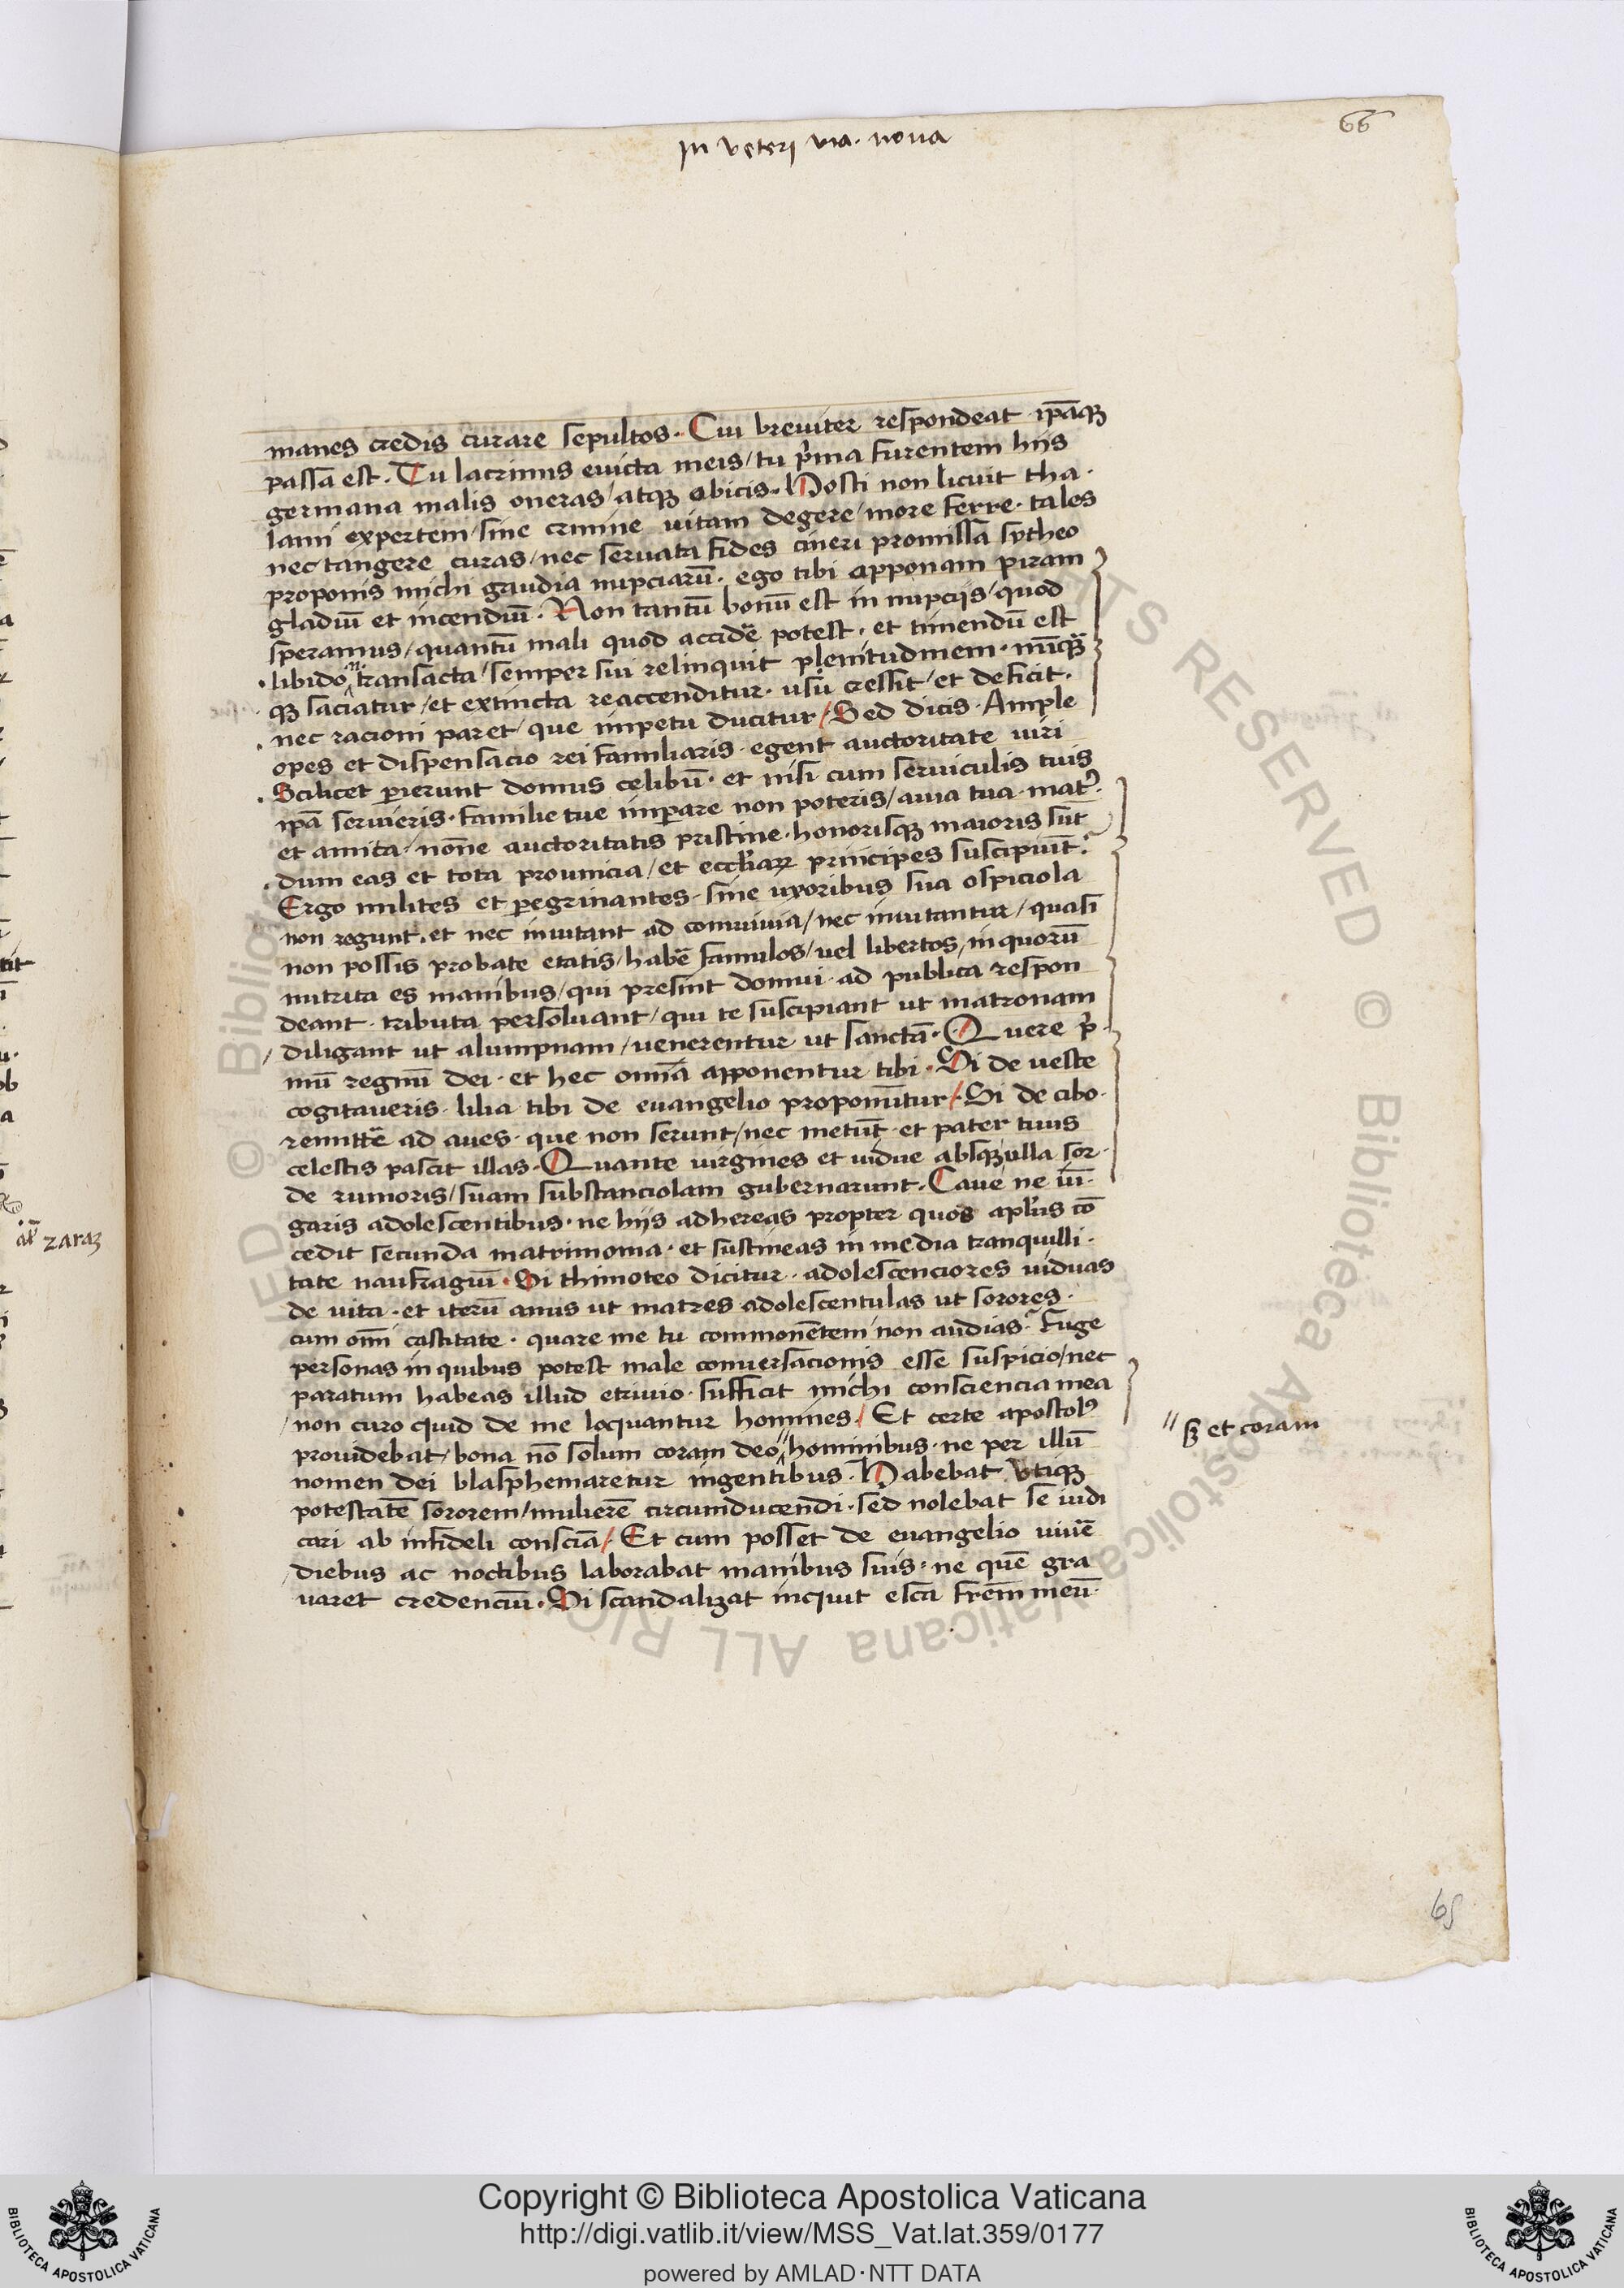 In veteri via. nova
66
manes credis curare sepultos. Cui breviter respondeat ip̄aq̄
passa est. Tu lacrimis euicta meis / tu p̄ma furentem hijs
germana malis oneras / atq̄ obicis. Nosti non licuit tha.
lami expertem / sine crimine uitam degere / more ferre. tales
nec tangere curas / nec seruata fides cineri promissa sytheo
proponis michi gaudia nupciarū. ego tibi apponam piram
gladiū et incendiū. Non tantū bonū est in nupcijs / quod
speramus / quantū mali quod accidē potest. et timendū est
. libido n̄ transacta / semper sui relinquit plenitudinem. nūq̄
q̄ saciatur / et extincta reaccenditur. usu cressit / et deficit.
. nec racioni paret / que impetu ducitur / Sed dicis. Ample
opes et dispensacio rei familiaris. egent auctoritate uiri
. Scilicet perierunt domus celibū. et nisi cum seruiculis tuis
ip̄a seruieris. familie tue imperare non poteris / auia tua. mat̉.
et amita. nōne auctoritatis pristine. honorisq̄ maioris sūt
. dum eas et tota prouincia / et eccliaꝝ principes suscipiūt.
Ergo milites et peregrinantes. sine uxoribus sua ospiciola
non regunt. et nec inuitant ad conuiuia / nec inuitantur / quasi
non possis probate etatis / habē famulos / uel libertos, in quorū
nutrita es manibus / qui presint domui. ad publica respon
deant. tributa persoluant / qui te suscipiant ut matronam
/ diligant ut alumpnam / uenerentur ut sanctā. Quere p̄.
mū regnū dei. et hec omīa apponentur tibi. Si de ueste
cogitaueris. lilia tibi de euangelio proponūtur /. Si de cibo.
remittē ad aues. que non serunt / nec metūt. et pater tuus
celestis pascit illas. Quante uirgines et uidue absq̄ ulla sor.
de rumoris / suam substanciolam gubernarunt. Caue ne iū.
garis adolescentibus. ne hijs adhereas propter quos ap̄lus cō
cedit secunda matrimonia. et sustineas in media tranquilli.
tate naufragiū. Si thimoteo dicitur. adolescenciores uiduas
de uita. et iterū anus ut matres adolescentulas ut sorores.
cum om̄i castitate. quare me tu commonētem non audias. Fuge
personas in quibus potest male conuersacionis esse suspicio / nec
paratum habeas illud etriuio. sufficit michi consciencia mea
/ non curo quid de me loquantur homines / Et certe apostolꝰ
prouidebat / bona nō solum coram deo // hominibus. ne per illū
// sꝫ et coram
nomen dei blasphemaretur ingentibus. Habebat vtiq̄
potestatē sororem / mulierē circumducendi. sed nolebat se iudi
cari ab infideli consciā /. Et cum posset de euangelio uiuē
/ diebus ac noctibus laborabat manibus suis. ne quē gra
uaret credenciū. Si scandalizat inquit esca frēm meū.
al̄ zaraꝫ
65
Copyright © Biblioteca Apostolica Vaticana
http://digi.vatlib.it/view/MSS_Vat.lat.359/0177
powered by AMLAD·NTT DATA
BIBLIOTECA APOSTOLICA VATICANA
BIBLIOTECA APOSTOLICA VATICANA